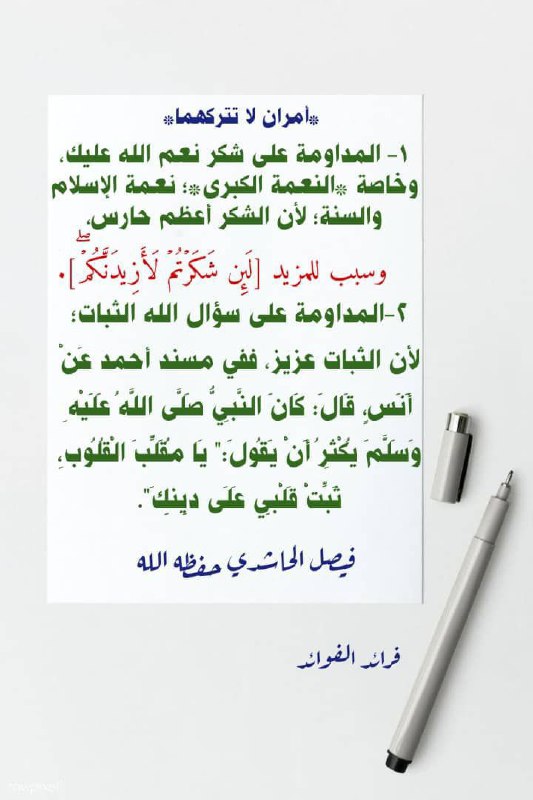 *أمران لا تتركهما*
١- المداومة على شكر نعم الله عليك،
وخاصة *النعمة الكبرى*؛ نعمة الإسلام
والسنة؛ لأن الشكر أعظم حارس،
وسبب للمزيد [لَئِن شَكَرْتُمْ لَأَزِيدَنَّكُمْ ۖ].
٢-المداومة على سؤال الله الثبات؛
لأن الثبات عزيز، ففي مسند أحمد عَنْ
أَنَسٍ، قَالَ: كَانَ النَّبِيُّ صَلَّى اللَّهُ عَلَيْهِ
وَسَلَّمَ يُكْثِرُ أَنْ يَقُولَ:" يَا مُقَلِّبَ الْقُلُوبِ،
ثَبِّتْ قَلْبِي عَلَى دِينِكَ".
فيصل الحاشدي حفظه الله
فرائد الفوائد
rawpixel